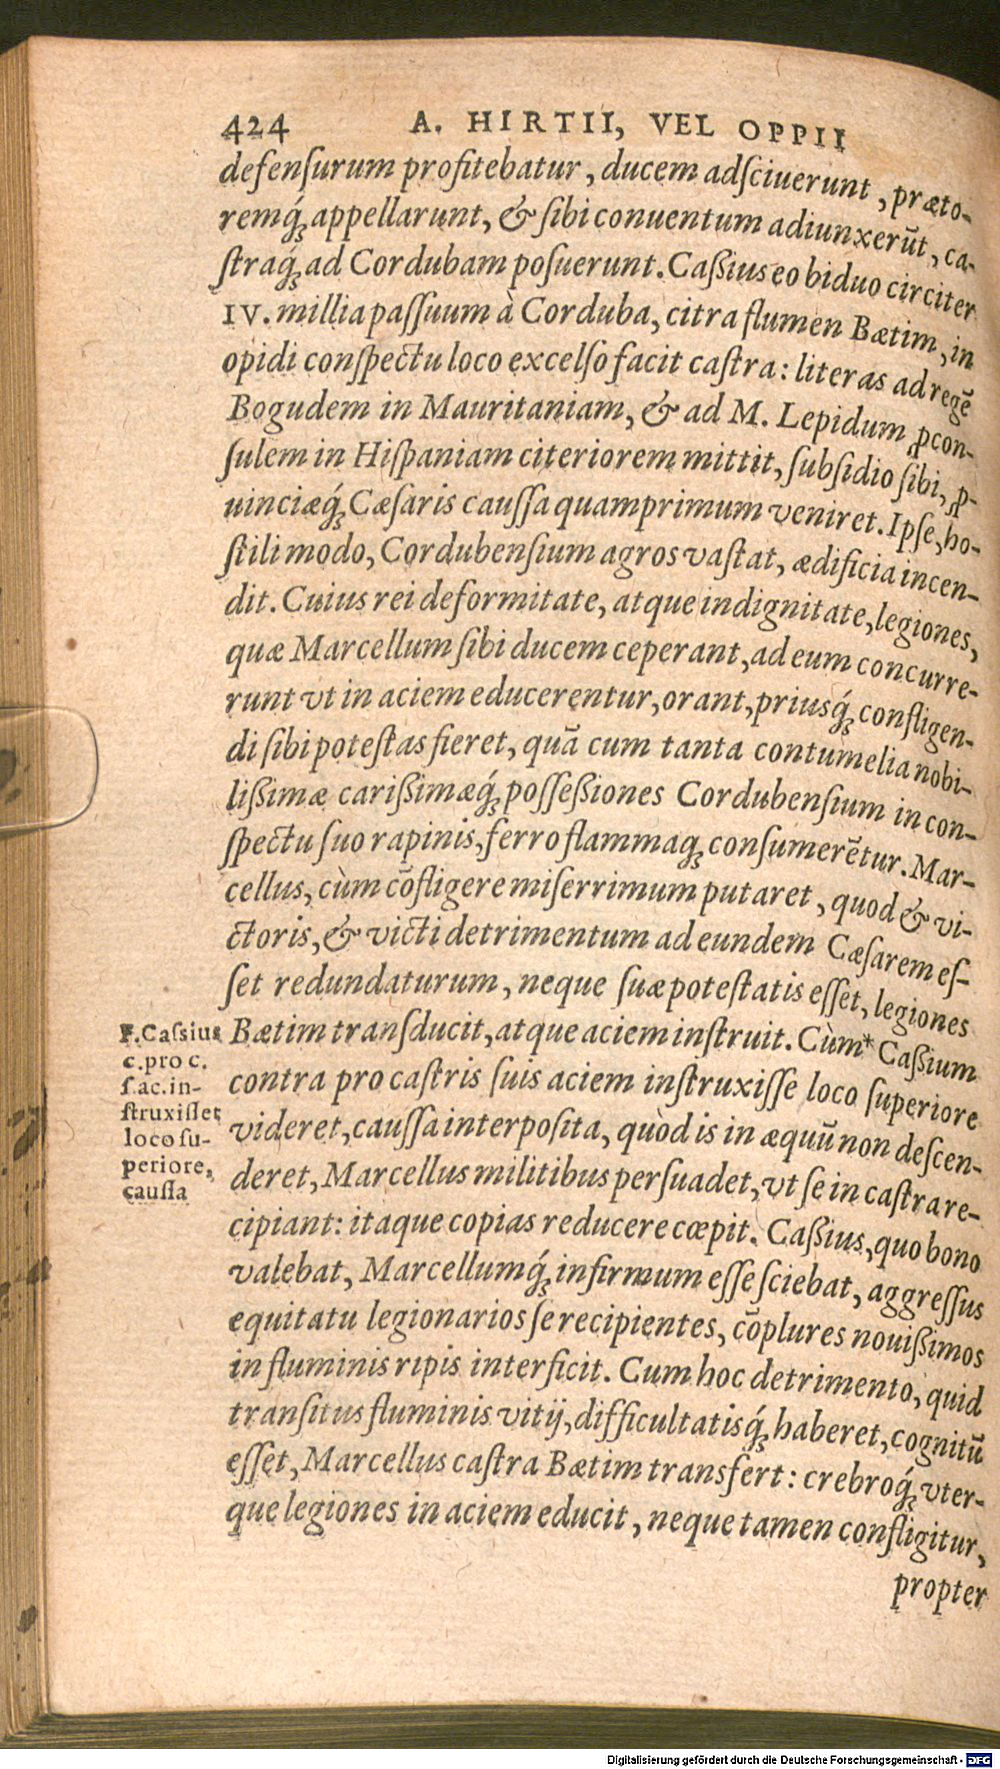 424 A. HIRTII, VEL OPPII
defenſurum profitebatur, ducem adſciuerunt, præto-
remq́ꝫ appellarunt, & ſibi conuentum adiunxerūt, ca-
ſtraq́ꝫ ad Cordubam poſuerunt. Caßius eo biduo circiter
IV. millia paſſuum à Corduba, citra flumen Bætim, in
opidi conſpectu loco excelſo facit caſtra: literas ad regē
Bogudem in Mauritaniam, & ad M. Lepidum ꝓcon-
ſulem in Hiſpaniam citeriorem mittit, ſubſidio ſibi, ꝓ-
uinciæq́ꝫ Cæſaris cauſſa quamprimum veniret. Ipſe, ho-
ſtili modo, Cordubenſium agros vaſtat, ædificia incen-
dit. Cuius rei deformitate, atque indignitate, legiones,
quæ Marcellum ſibi ducem ceperant, ad eum concurre-
runt vt in aciem educerentur, orant, priusq́ꝫ confligen-
di ſibi poteſtas fieret, quā cum tanta contumelia nobi-
lißimæ carißimæq́ꝫ poſſeßiones Cordubenſium in con-
ſpectu ſuo rapinis, ferro flammaqꝫ conſumerētur. Mar-
cellus, cùm cōfligere miſerrimum putaret, quod & vi-
ctoris, & victi detrimentum ad eundem Cæſarem eſ-
ſet redundaturum, neque ſuæ poteſtatis eſſet, legiones
Bætim tranſducit, atque aciem inſtruit. Cùm* Caßium
contra pro caſtris ſuis aciem inſtruxiſſe loco ſuperiore
videret, cauſſa interpoſita, quòd is in æquū non deſcen-
deret, Marcellus militibus perſuadet, vt ſe in caſtra re-
cipiant: itaque copias reducere cœpit. Caßius, quo bono
valebat, Marcellumq́ꝫ infirmum eſſe ſciebat, aggreſſus
equitatu legionarios ſe recipientes, cōplures nouißimos
in fluminis ripis interficit. Cum hoc detrimento, quid
tranſitus fluminis vitij, difficultatisq́ꝫ haberet, cognitū
eſſet, Marcellus caſtra Bætim transfert: crebroq́ꝫ vter-
que legiones in aciem educit, neque tamen confligitur,
propter
F. Caſsius
c. pro c.
ſ. ac. in-
ſtruxiſſet
loco ſu-
periore,
cauſſa
Digitalisierung gefördert durch die Deutsche Forschungsgemeinschaft - DFG